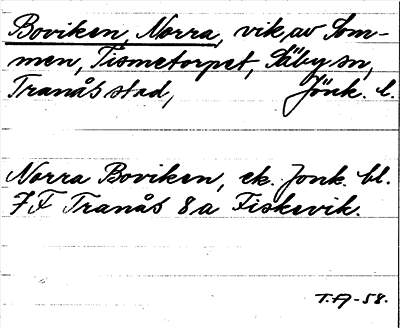 Boviken, Norra, vik, av Som-
men, Tismetorpet, Säby sn,
Tranås stad, Jönk. l.
Norra Boviken, ek. Jonk. bl.
7 F Tranås 8 a Fiskevik.
T.A-58.